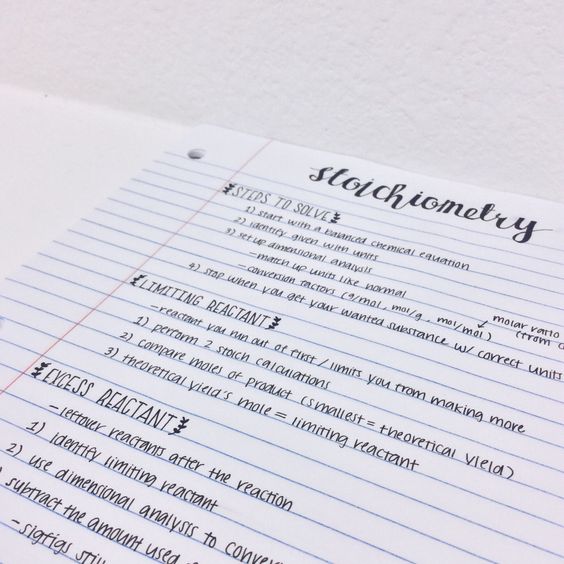 stoichiometry
STEPS TO SOLVE
1) start with a balanced chemical equation
2) identify given with units
3) set up dimensional analysis
-match up units like normal
-conversion factors (g/mol, mol/g, mol/mol)
molar ratio
(from
4) stop when you get your wanted substance w/ correct units
LIMITING REACTANT
-reactant you run out of first / limits you from making more
1) perform 2 stoich calculations
2) compare moles of product (smallest = theoretical yield)
3) theoretical yield's mole = limiting reactant
EXCESS REACTANT
-leftover reactants after the reaction
1) identify limiting reactant
2) use dimensional analysis to
subtract the amount used
-sigfigs